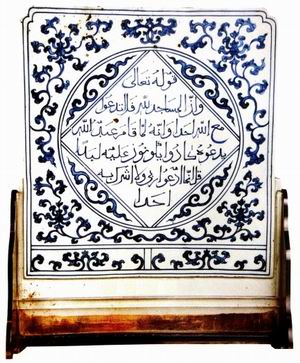 قوله تعالى
وان المساجد لله فلا تدعوا
مع الله احدا وانه لما قام عبد الله
يدعوه كادوا يكونون عليه لبدا
قل انما ادعوا ربي ولا اشرك به
احدا